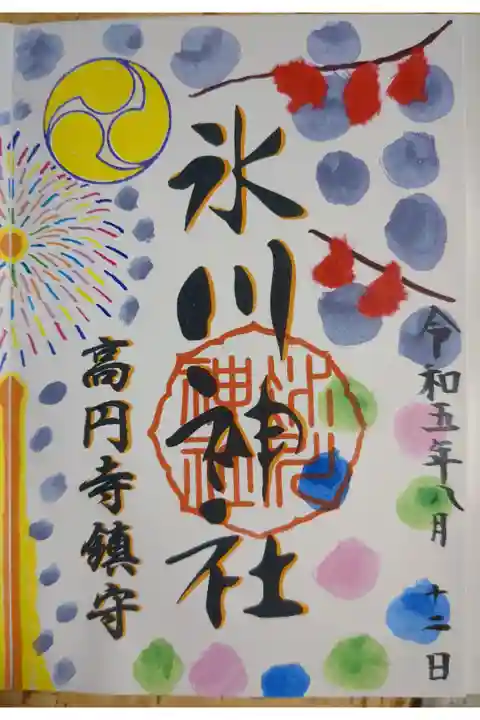 令和五年八月十二日
氷川神社
高円寺鎮守
氷川神社